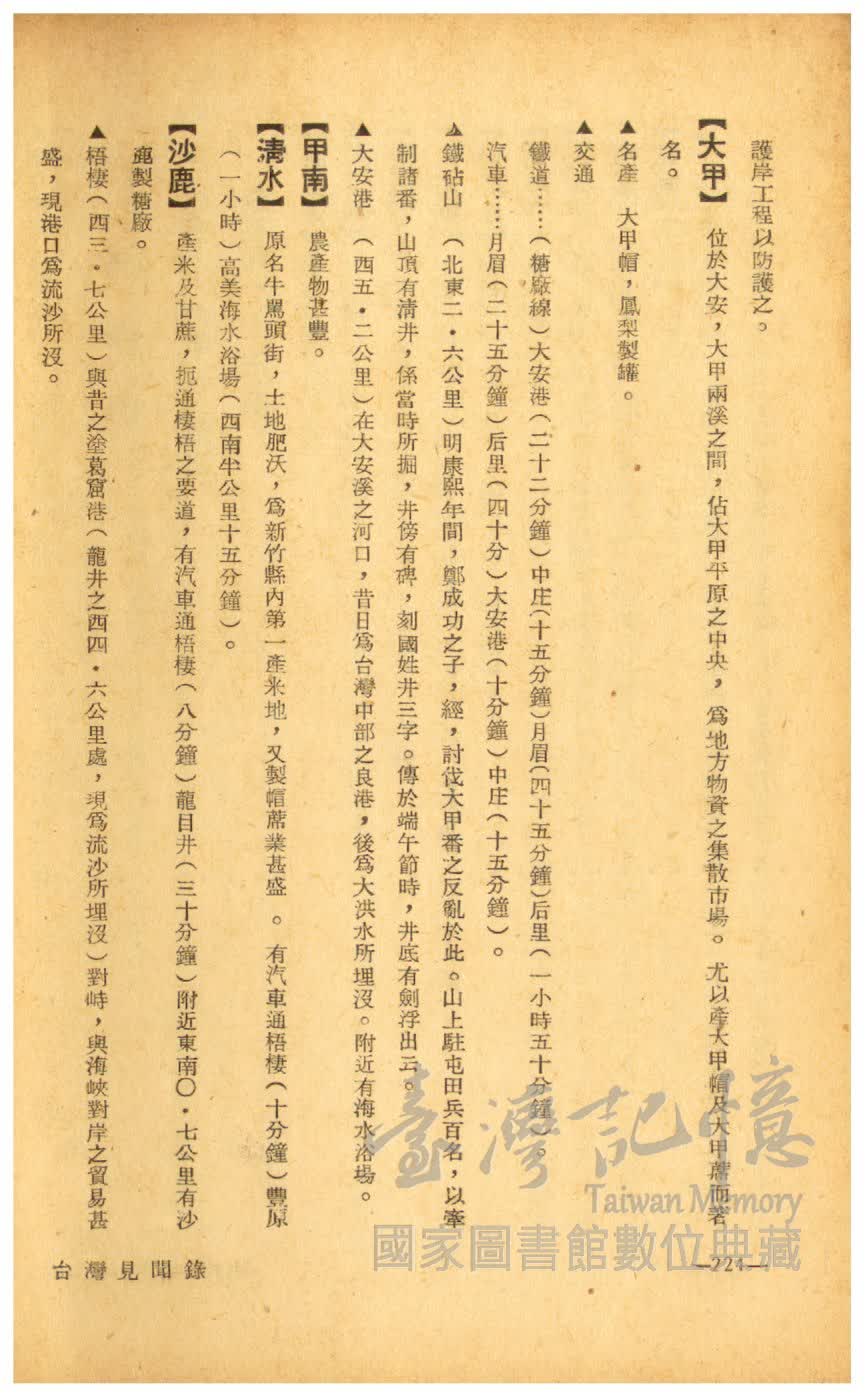 護岸工程以防護之。
【大甲】　位於大安，大甲兩溪之間，佔大甲平原之中央，爲地方物資之集散市場。尤以產大甲帽及大甲蓆而著
名。
▲名產　大甲帽，鳳梨製罐。
▲交通
鐵道……（糖廠線）大安港（二十二分鐘）中庄（十五分鐘）月眉（四十五分鐘）后里（一小時五十分鐘）。
汽車……月眉（二十五分鐘）后里（四十分）大安港（十分鐘）中庄（十五分鐘）。
▲鐵砧山　（北東二・六公里）明康熙年間，鄭成功之子，經，討伐大甲番之反亂於此。山上駐屯田兵百名，以牽
制諸番，山頂有淸井，係當時所掘，井傍有碑，刻國姓井三字。傳於端午節時，井底有劍浮出云。
▲大安港　（西五・二公里）在大安溪之河口，昔日爲台灣中部之良港，後爲大洪水所埋沒。附近有海水浴場。
【甲南】　農產物甚豐。
【淸水】　原名牛罵頭街，土地肥沃，爲新竹縣內第一產米地，又製帽蓆業甚盛。有汽車通梧棲（十分鐘）豐原
（一小時）高美海水浴場（西南半公里十五分鐘）。
【沙鹿】　產米及甘蔗，扼通棲梧之要道，有汽車通梧棲（八分鐘）龍目井（三十分鐘）附近東南〇・七公里有沙
鹿製糖廠。
▲梧棲（西三・七公里）與昔之塗葛窟港（龍井之西四・六公里處，現爲流沙所埋沒）對峙，與海峽對岸之貿易甚
盛，現港口爲流沙所沒。
台灣見聞錄
—224—
臺灣記憶
Taiwan Memory
國家圖書館數位典藏